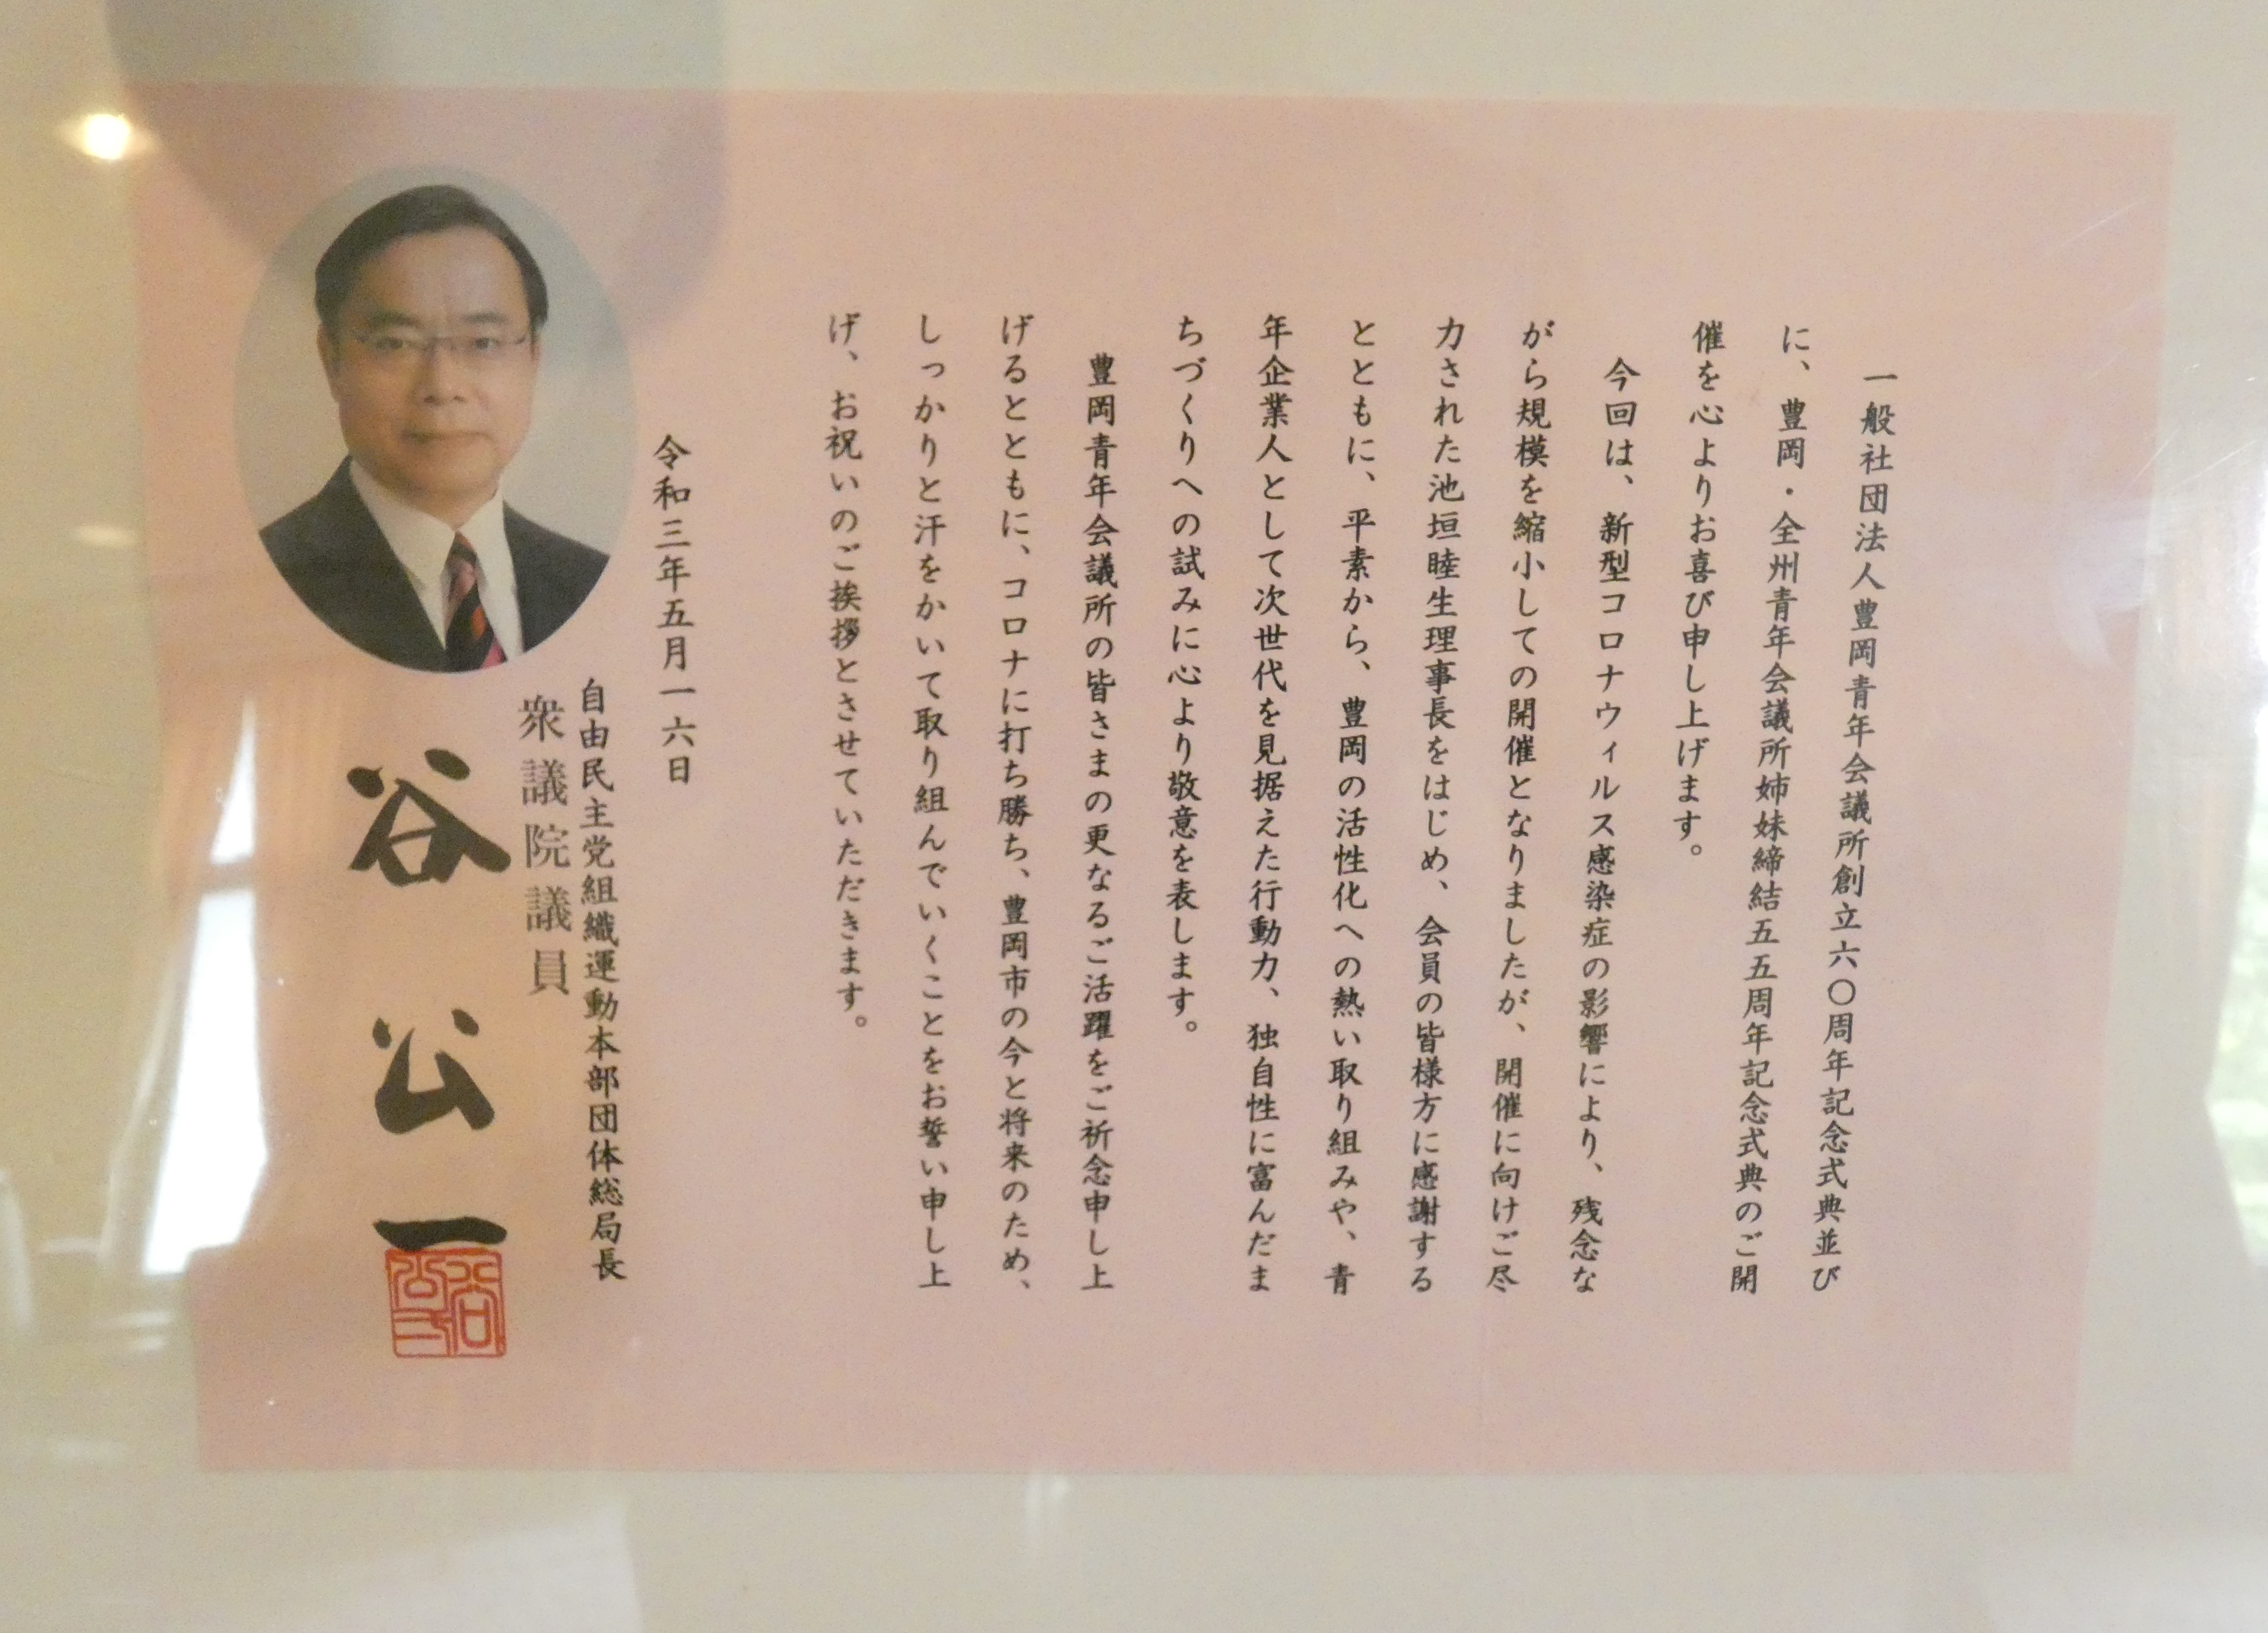 一般社団法人豊岡青年会議所創立六〇周年記念式典並び
に、豊岡・全州青年会議所姉妹締結五五周年記念式典のご開
催を心よりお喜び申し上げます。
今回は、新型コロナウィルス感染症の影響により、残念な
がら規模を縮小しての開催となりましたが、開催に向けご尽
力された池垣睦生理事長をはじめ、会員の皆様方に感謝する
とともに、平素から、豊岡の活性化への熱い取り組みや、青
年企業人として次世代を見据えた行動力、独自性に富んだま
ちづくりへの試みに心より敬意を表します。
豊岡青年会議所の皆さまの更なるご活躍をご祈念申し上
げるとともに、コロナに打ち勝ち、豊岡市の今と将来のため、
しっかりと汗をかいて取り組んでいくことをお誓い申し上
げ、お祝いのご挨拶とさせていただきます。
令和三年五月一六日
自由民主党組織運動本部団体総局長
衆議院議員
谷公一